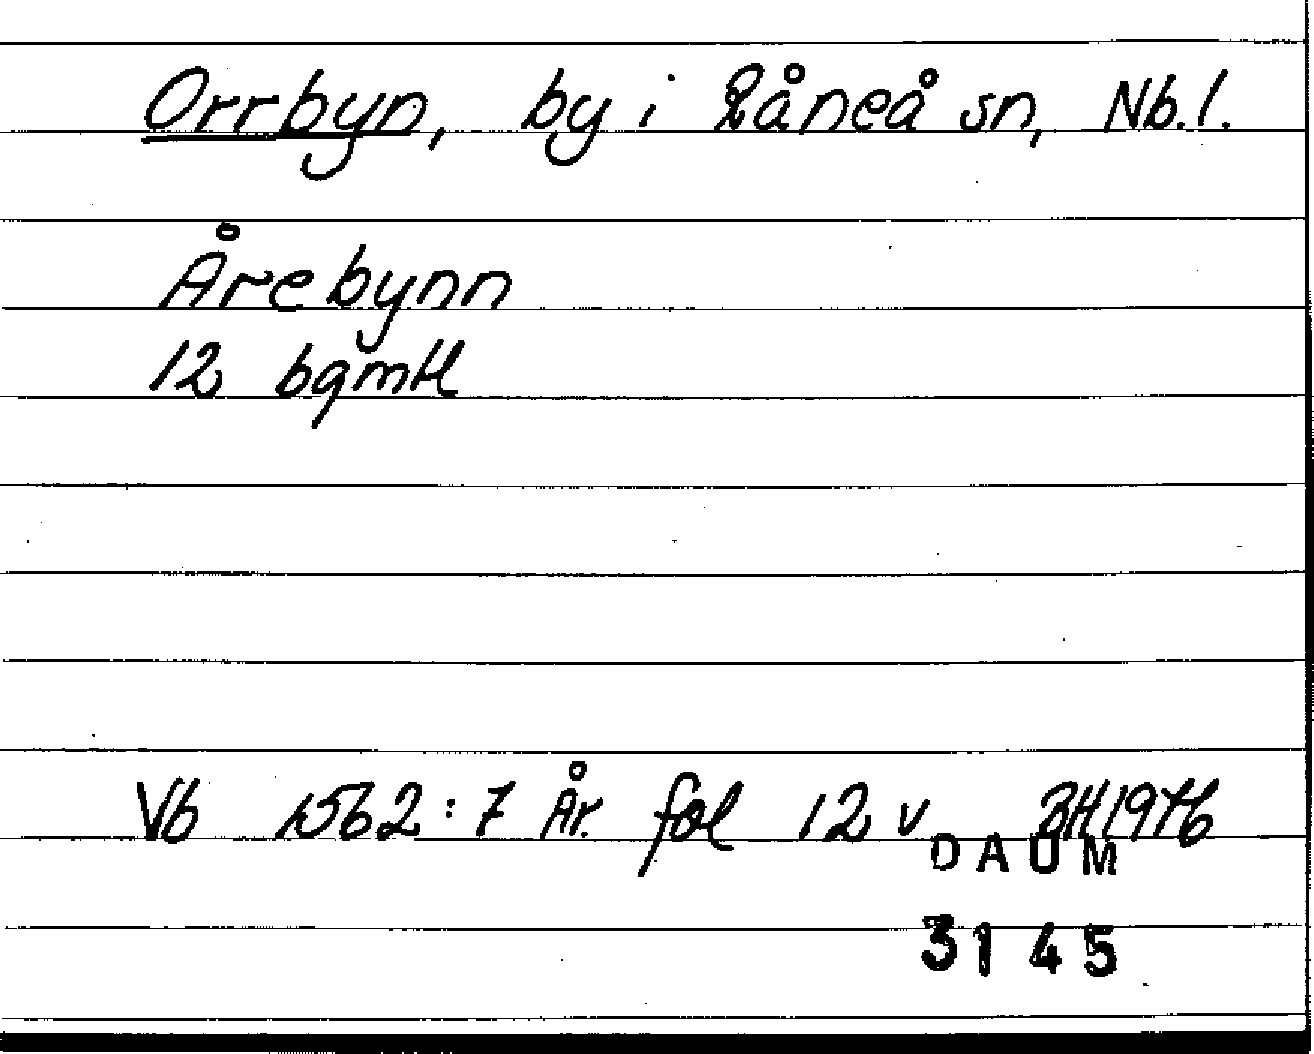 Orrbyn, by i Råneå sn, Nb.l.
Årebynn
12 bgmtl
Vb 1562:7 År. fol 12 v BH1976
DAUM
3145